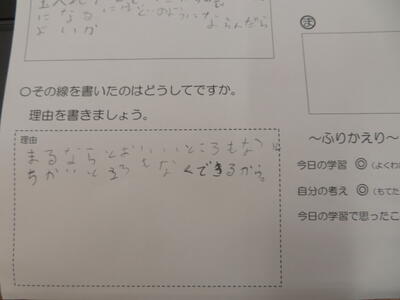 になるにはどのようにならんだら
よいか
○その線を書いたのはどうしてですか。
理由を書きましょう。
理由
まるならとおいいところもなく
ちかいところもなくできるから。
ま
～ふりかえり～
今日の学習 ◎（よくわ
自分の考え ◎（もてた
今日の学習で思ったこ